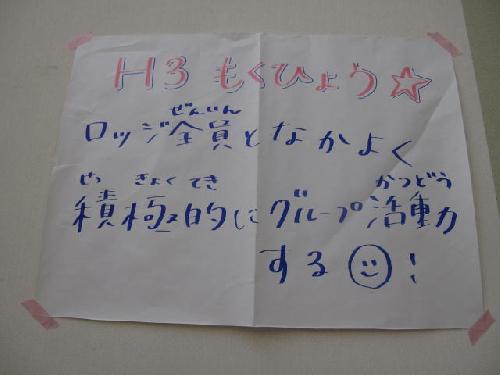 H3 もくひょう☆
ぜんいん
ロッジ全員となかよく
せっ きょく てき かつどう
積極的にグループ活動
する☺!